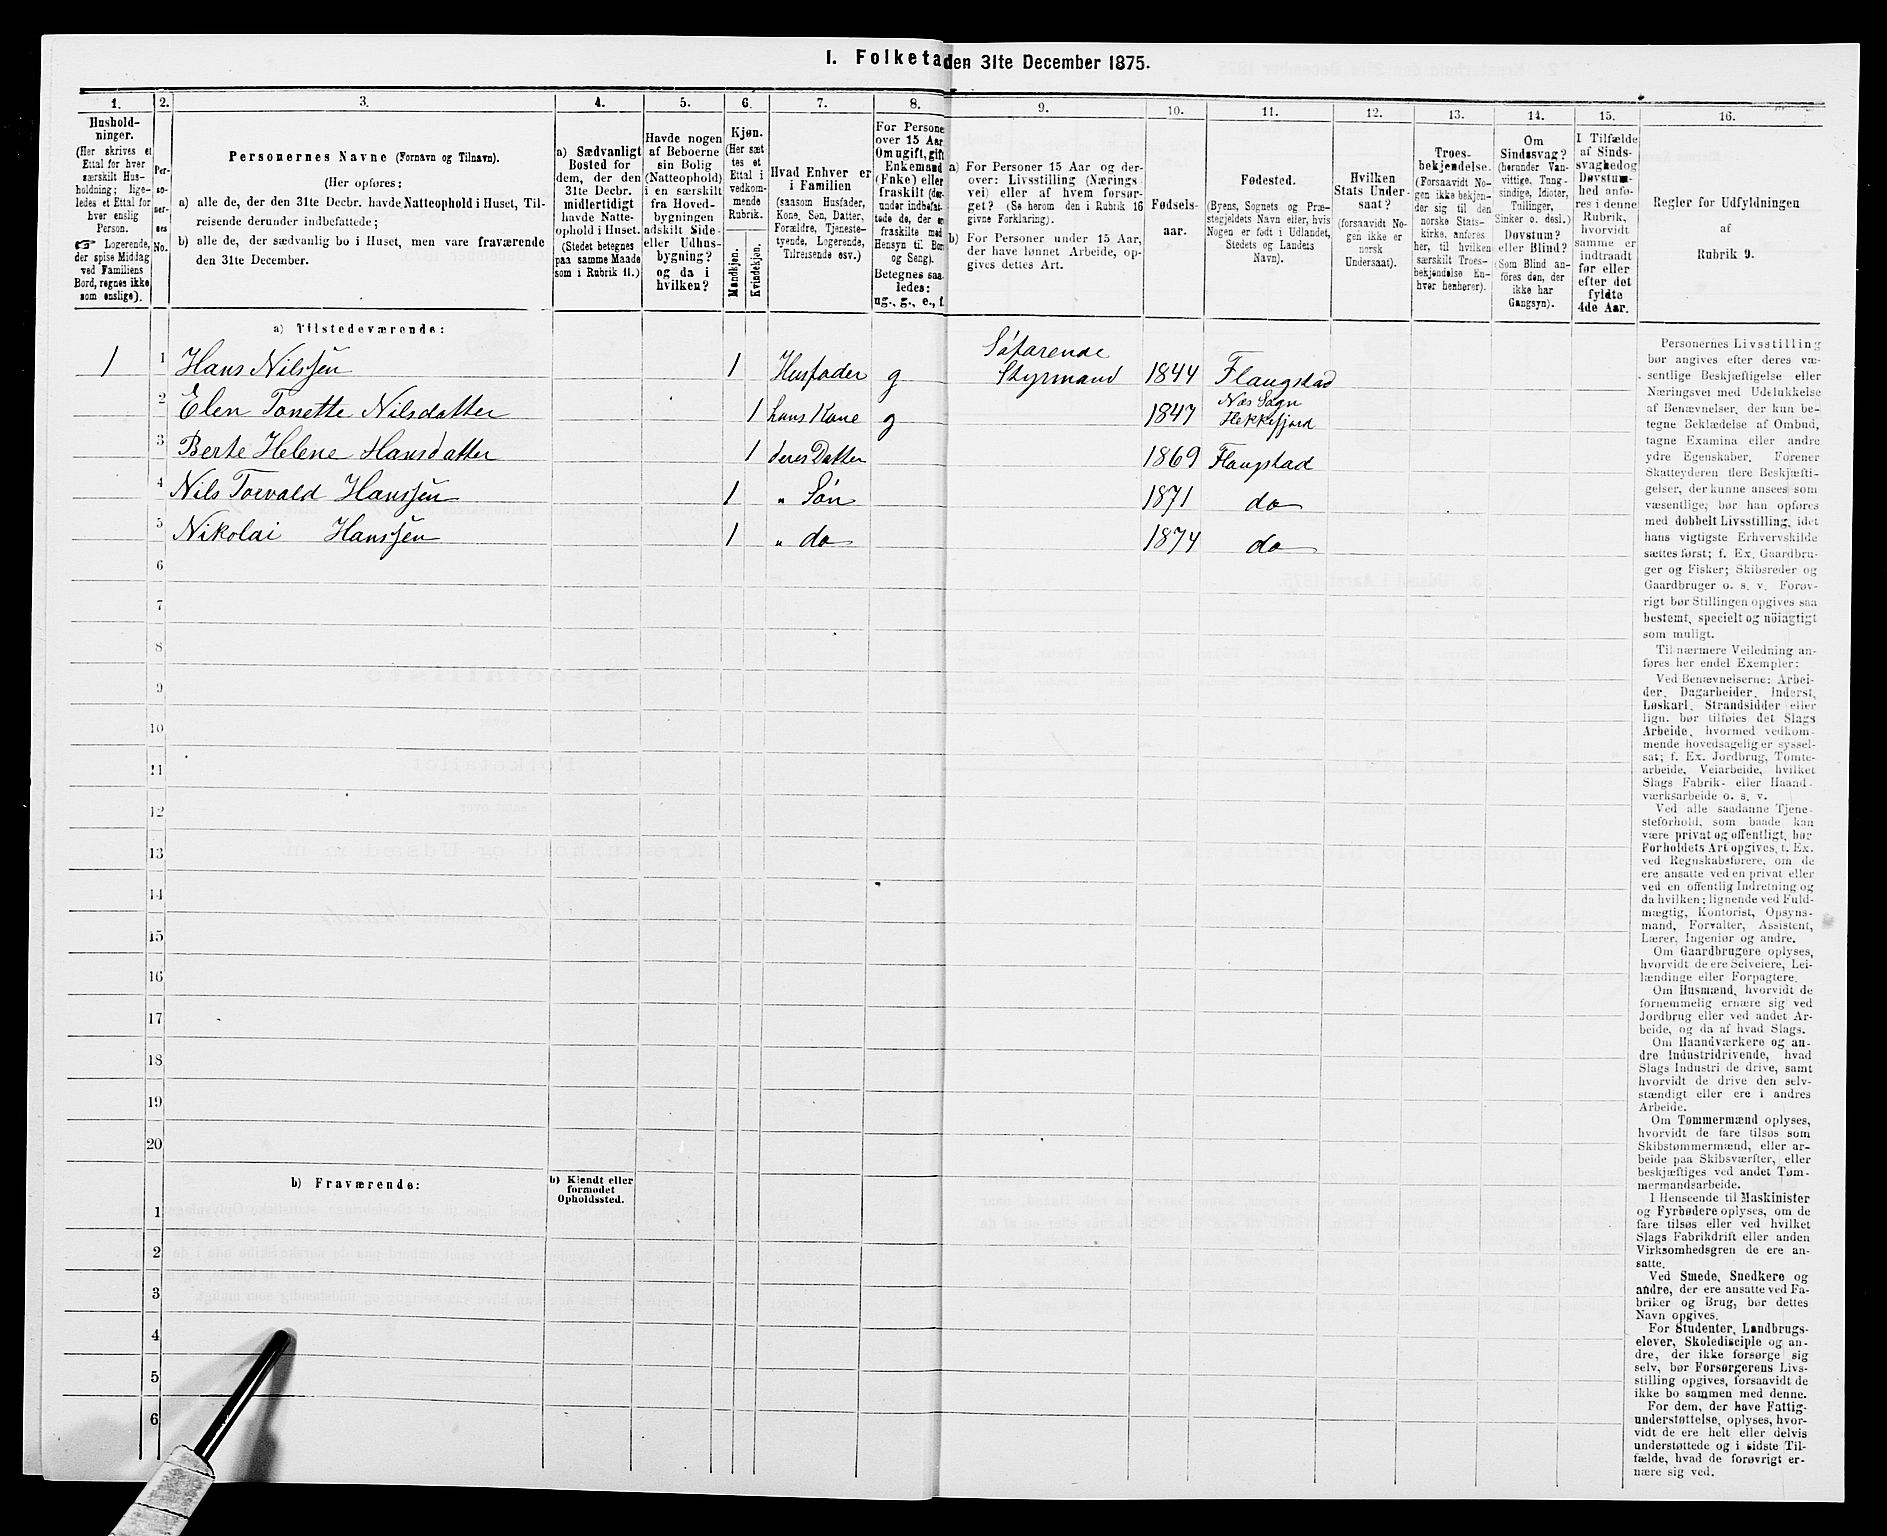 I. Folketa den 31te December 1875.
1.
2.
3.
4.
5.
6.
7.
8.
9.
10.
11.
12.
13.
14.
15.
16.
Hushold-
ninger.
(Her skrives et
Ettal for hver
særskilt Hus-
holdning; lige-
ledes et Ettal for
hver enslig
Person.
☞ Logerende,
der spise Middag
ved Familiens
Bord, regnes ikke
som enslige).
Per-
so-
ner-
nes
No.
Personernes Navne (Fornavn og Tilnavn).
(Her opføres:
a) alle de, der den 31te Decbr. havde Natteophold i Huset, Til-
reisende derunder indbefattede;
b) alle de, der sædvanlig bo i Huset, men vare fraværende
den 31te December.
a) Sædvanligt
Bosted for
dem, der den
31te Decbr.
midlertidigt
havde Natte-
ophold i Huset.
(Stedet betegnes
paa samme Maade
som i Rubrik 11.)
Havde nogen
af Beboerne
sin Bolig
(Natteophold)
i en særskilt
fra Hoved-
bygningen
adskilt Side-
eller Udhus-
bygning?
og da i
hvilken?
Kjøn.
(Her sæt
tes et
Ettal i
vedkom-
mende
Rubrik.
Mandkjøn.
Kvindekjøn.
Hvad Enhver er
i Familien
(saasom Husfader,
Kone, Søn, Datter,
Forældre, Tjeneste-
tyende, Logerende,
Tilreisende osv.)
For Persone
over 15 Aar
Om ugift, gift
Enkemand
(Enke) eller
fraskilt (der-
under indbefat-
tede de, der er
fraskilte med
Hensyn til Bor
og Seng).
Betegnes saa-
ledes:
ug., g., e., f.
a) For Personer 15 Aar og der-
over: Livsstilling (Nærings-
vei) eller af hvem forsør-
get? (Se herom den i Rubrik 16
givne Forklaring).
b) For Personer under 15 Aar,
der have lønnet Arbeide, op-
gives dettes Art.
Fødsels-
aar.
Fødested.
(Byens, Sognets og Præ-
stegjeldets Navn eller, hvis
Nogen er født i Udlandet,
Stedets og Landets
Navn).
Hvilken
Stats Under-
saat?
(forsaavidt No-
gen ikke er
norsk
Undersaat).
Troes-
bekjendelse.
(Forsaavidt No-
gen ikke bekjen-
der sig til den
norske Stats-
kirke, anføres
her, til hvilken
særskilt Troes-
bekjendelse En-
hver henhører).
Om
Sindssvag?
(herunder Van-
vittige, Tung-
sindige, Idioter,
Tullinger,
Sinker o. desl.)
Døvstum?
eller Blind?
(Som Blind an-
føres den, der
ikke har
Gangsyn).
I Tilfælde
af Sinds-
svaghed og
Døvstum-
hed anfø-
res i denne
Rubrik,
hvorvidt
samme er
indtraadt
før eller
efter det
fyldte
4de Aar.
Regler for Udfyldningen
af
Rubrik 9.
a) Tilstedeværende:
1 1 Hans Nilssen 1 Husfader g Søfarende Styrmand 1844 Flaugstad
2 Elen Tonette Nilsdatter 1 hans Kone g 1847 Næs Sogn Flekkefjord
3 Berte Helene Hansdatter 1 deres Datter 1869 Flaugstad
4 Nils Torvald Hanssen 1 " Søn 1871 do
5 Nikolai Hanssen 1 " do 1874 do
6
7
8
9
10
11
12
13
14
15
16
17
18
19
20
b) Fraværende:
b) Kjendt eller
formodet
Opholdssted.
1
2
3
4
5
6
Personernes Livsstilling
bør angives efter deres væ-
sentlige Beskjæftigelse eller
Næringsvei med Udelukkelse
af Benævnelser, der kun be-
tegne Beklædelse af Ombud,
tagne Examina eller andre
ydre Egenskaber. Forener
Skatteyderen flere Beskjæfti-
gelser, der kunne ansees som
væsentlige, bør han opføres
med dobbelt Livsstilling, idet
hans vigtigste Erhvervskilde
sættes først; f. Ex. Gaardbru-
ger og Fisker; Skibsreder og
Gaardbruger o. s. v. Forøv-
rigt bør Stillingen opgives saa
bestemt, specielt og nöiagtigt
som muligt.
Til nærmere Veiledning an-
føres her endel Exempler:
Ved Benævnelserne: Arbei-
der, Dagarbeider, Inderst,
Løskarl, Strandsidder eller
lign. bør tilføies det Slags
Arbeide, hvormed vedkom-
mende hovedsagelig er syssel-
sat; f. Ex. Jordbrug, Tomte-
arbeide, Veiarbeide, hvilket
Slags Fabrik- eller Haand-
værksarbeide o. s. v.
Ved alle saadanne Tjene-
steforhold, som baade kan
være privat og offentligt, bør
Forholdets Art opgives, f. Ex.
ved Regnskabsførere, om de
ere ansatte ved en privat eller
ved en offentlig Indretning og
da hvilken; lignende ved Fuld-
mægtig, Kontorist, Opsyns-
mand, Forvalter, Assistent,
Lærer, Ingeniør og andre.
Om Gaardbrugere oplyses,
hvorvidt de ere Selveiere, Lei-
lændinge eller Forpagtere.
Om Husmænd, hvorvidt de
fornemmelig ernære sig ved
Jordbrug eller ved andet Ar-
beide, og da af hvad Slags.
Om Haandværkere og an-
dre Industridrivende, hvad
Slags Industri de drive, samt
hvorvidt de drive den selv-
stændigt eller ere i andres
Arbeide.
Om Tømmermænd oplyses,
hvorvidt de fare tilsøs som
Skibstømmermænd, eller ar-
beide paa Skibsværfter, eller
beskjæftiges ved andet Tøm-
mermandsarbeide.
I Henseende til Maskinister
og Fyrbødere oplyses, om de
fare tilsøs eller ved hvilket
Slags Fabrikdrift eller anden
Virksomhedsgren de ere an-
satte.
Ved Smede, Snedkere og
andre, der ere ansatte ved Fa-
briker og Brug, bør dettes
Navn opgives.
For Studenter, Landbrugs-
elever, Skoledisciple og an-
dre, der ikke forsørge sig
selv, bør Forsørgerens Livs-
stilling opgives, forsaavidt de
ikke bo sammen med denne.
For dem, der have Fattig-
understøttelse, oplyses, hvor-
vidt de ere helt eller delvis
understøttede og i sidste Til-
fælde, hvad de forøvrigt er-
nære sig ved.